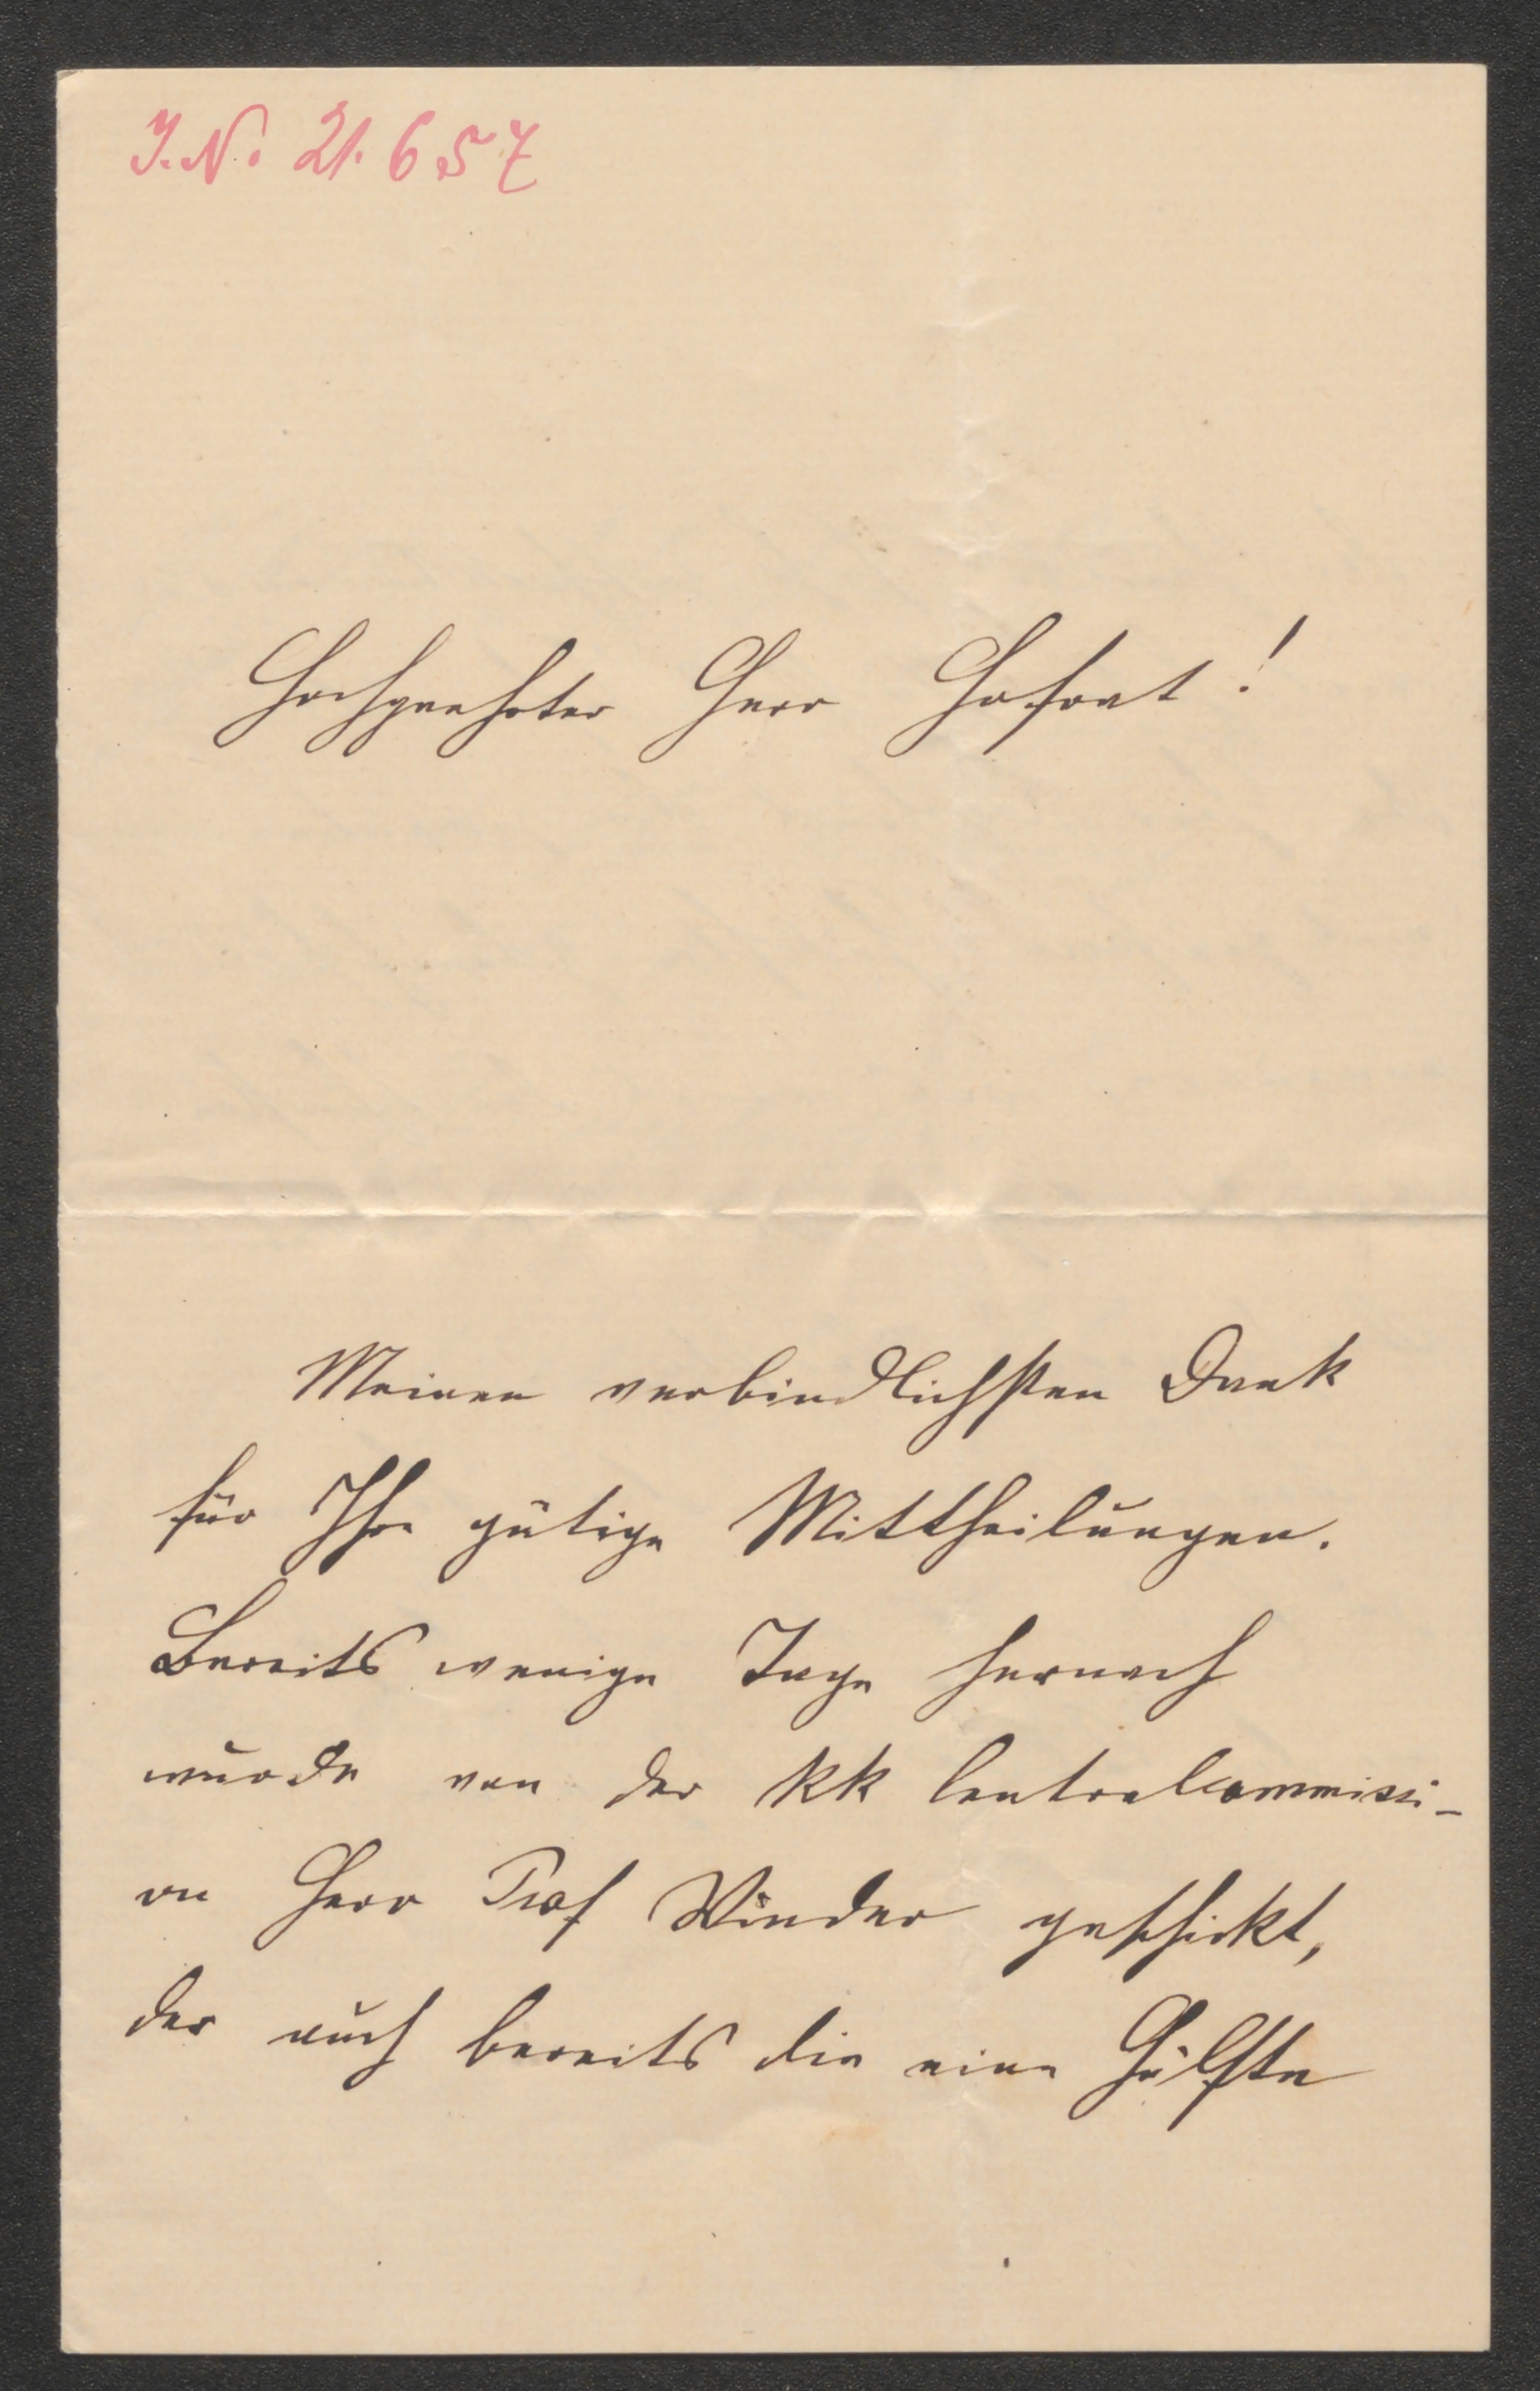 J.N. 21.657
Hochgeehrter Herr Hofrat!
Meinen verbindlichsten Dank
für Ihre gütige Mittheilungen.
Bereits wenige Tage hernach
wurde von der kk Centralcommissi-
on Herr Prof Winder geschickt,
der auch bereits die eine Hälfte